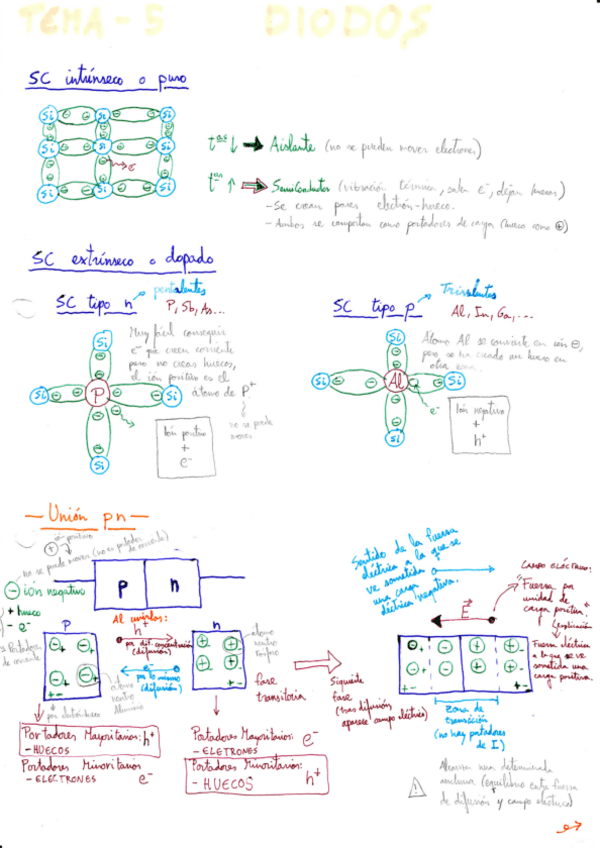 TEMA - 5 DIODOS
SC intrínseco o puro
Si Si Si
Si Si Si
e-
Si Si Si
tas ↓ → Aislante (no se pueden mover electrones)
tas ↑ ⇒ Semiconductor (vibración térmica, saltan e-, dejan huecos)
- Se crean pares electrón-hueco.
- Ambos se comportan como portadores de carga (hueco como ⊕)
SC extrínseco o dopado
SC tipo n
pentavalentes
P, Sb, As...
Muy fácil conseguir
e- que creen corriente
pero no creas huecos,
el ión positivo es el
átomo de P+
no se puede
mover
Si
Si P Si
Si
Ión positivo
+
e-
SC tipo p
Trivalentes
Al, In, Ga,...
Átomo Al se convierte en ión ⊖,
pero se ha creado un hueco en
otra
Si
Si Al Si
e-
Si
Ión negativo
+
h+
- Unión pn -
ión positivo
no se puede mover (no es portador
de corriente)
⊖ ión negativo
+ hueco
- e-
Portadores
de corriente
p n
Al unirlos:
h+
por dif. concentración
(difusión)
e-
por lo mismo
(difusión)
p
n
átomo
neutro
fósforo
átomo
neutro
Aluminio
par electrón-hueco
Fase
transitoria
Portadores Mayoritarios: h+
- HUECOS
Portadores Minoritarios
- ELECTRONES e-
Portadores Mayoritarios: e-
- ELETRONES
Portadores Minoritarios: h+
- HUECOS
Siguiente
fase
(tras difusión
aparece campo eléctrico)
Sentido de la fuerza
eléctrica a la que se
ve sometida
una carga
eléctrica negativa.
E
CAMPO ELÉCTRICO:
"Fuerza por
unidad de
carga positiva"
(explicación)
Fuerza eléctrica
a la que se ve
sometida una
carga positiva.
Zona de
transición
(no hay portadores
de I)
Alcanza una determinada
anchura (equilibrio entre fuerza
de difusión y campo eléctrico)